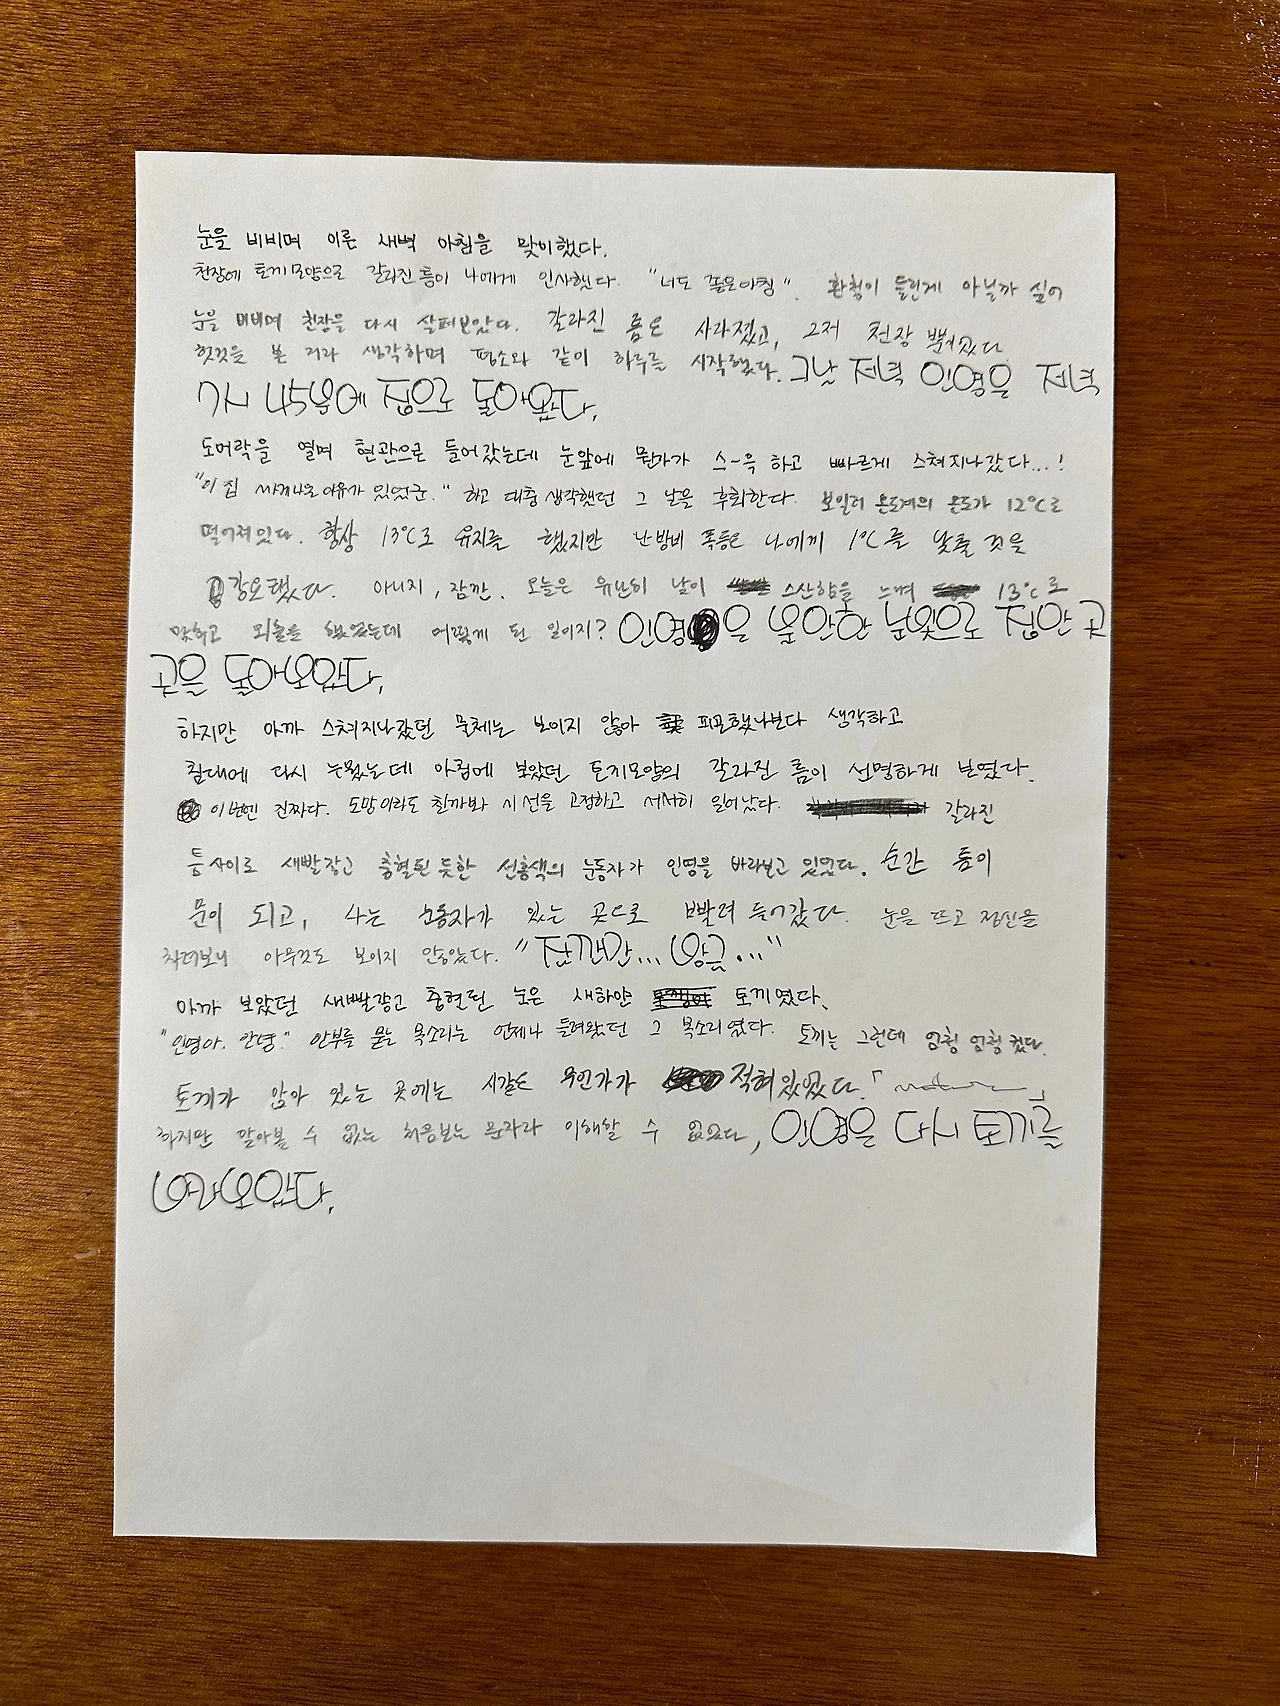 눈을 비비며 이른 새벽 아침을 맞이했다.
천장에 토끼모양으로 갈라진 틈이 나에게 인사했다. "너도 좋은아침". 환청이 들린게 아닐까 싶어
눈을 비비며 천장을 다시 살펴보았다. 갈라진 틈은 사라졌고, 그저 천장 뿐이었다
헛것을 본 거라 생각하며 평소와 같이 하루를 시작했다. 그날 저녁 인영은 저녁
7시 45분에 집으로 돌아왔다.
도어락을 열며 현관으로 들어갔는데 눈앞에 뭔가가 스-윽 하고 빠르게 스쳐지나갔다...!
"이 집 싸게나온 이유가 있었군." 하고 대충 생각했던 그 날을 후회한다. 보일러 온도계의 온도가 12℃로
떨어져있다. 항상 13℃로 유지를 했지만 난방비 폭등은 나에게 1℃를 낮출 것을
강요했다. 아니지, 잠깐. 오늘은 유난히 날이 스산함을 느껴 13℃로
맞추고 외출을 했었는데 어떻게 된 일이지? 인영은 불안한 눈빛으로 집안 곳
곳을 돌아보았다.
하지만 아까 스쳐지나갔던 물체는 보이지 않아 피곤했나보다 생각하고
침대에 다시 누웠는데 아침에 보았던 토끼모양의 갈라진 틈이 선명하게 보였다.
이번엔 진짜다. 도망이라도 할까봐 시선을 고정하고 서서히 일어났다. 갈라진
틈 사이로 새빨갛고 충혈된 듯한 선홍색의 눈동자가 인영을 바라보고 있었다. 순간 틈이
문이 되고, 나는 눈동자가 있는 곳으로 빨려 들어갔다. 눈을 뜨고 정신을
차려보니 아무것도 보이지 않았다. "잠깐만... 방금..."
아까 보았던 새빨갛고 충혈된 눈은 새하얀 토끼였다.
"인영아. 안녕." 안부를 묻는 목소리는 언제나 들려왔던 그 목소리였다. 토끼는 그런데 엄청 엄청 컸다.
토끼가 앉아 있는 곳에는 무언가가 적혀있었다. 「 」
하지만 알아볼 수 없는 처음보는 문자라 이해할 수 없었다, 인영은 다시 토끼를
바라보았다.